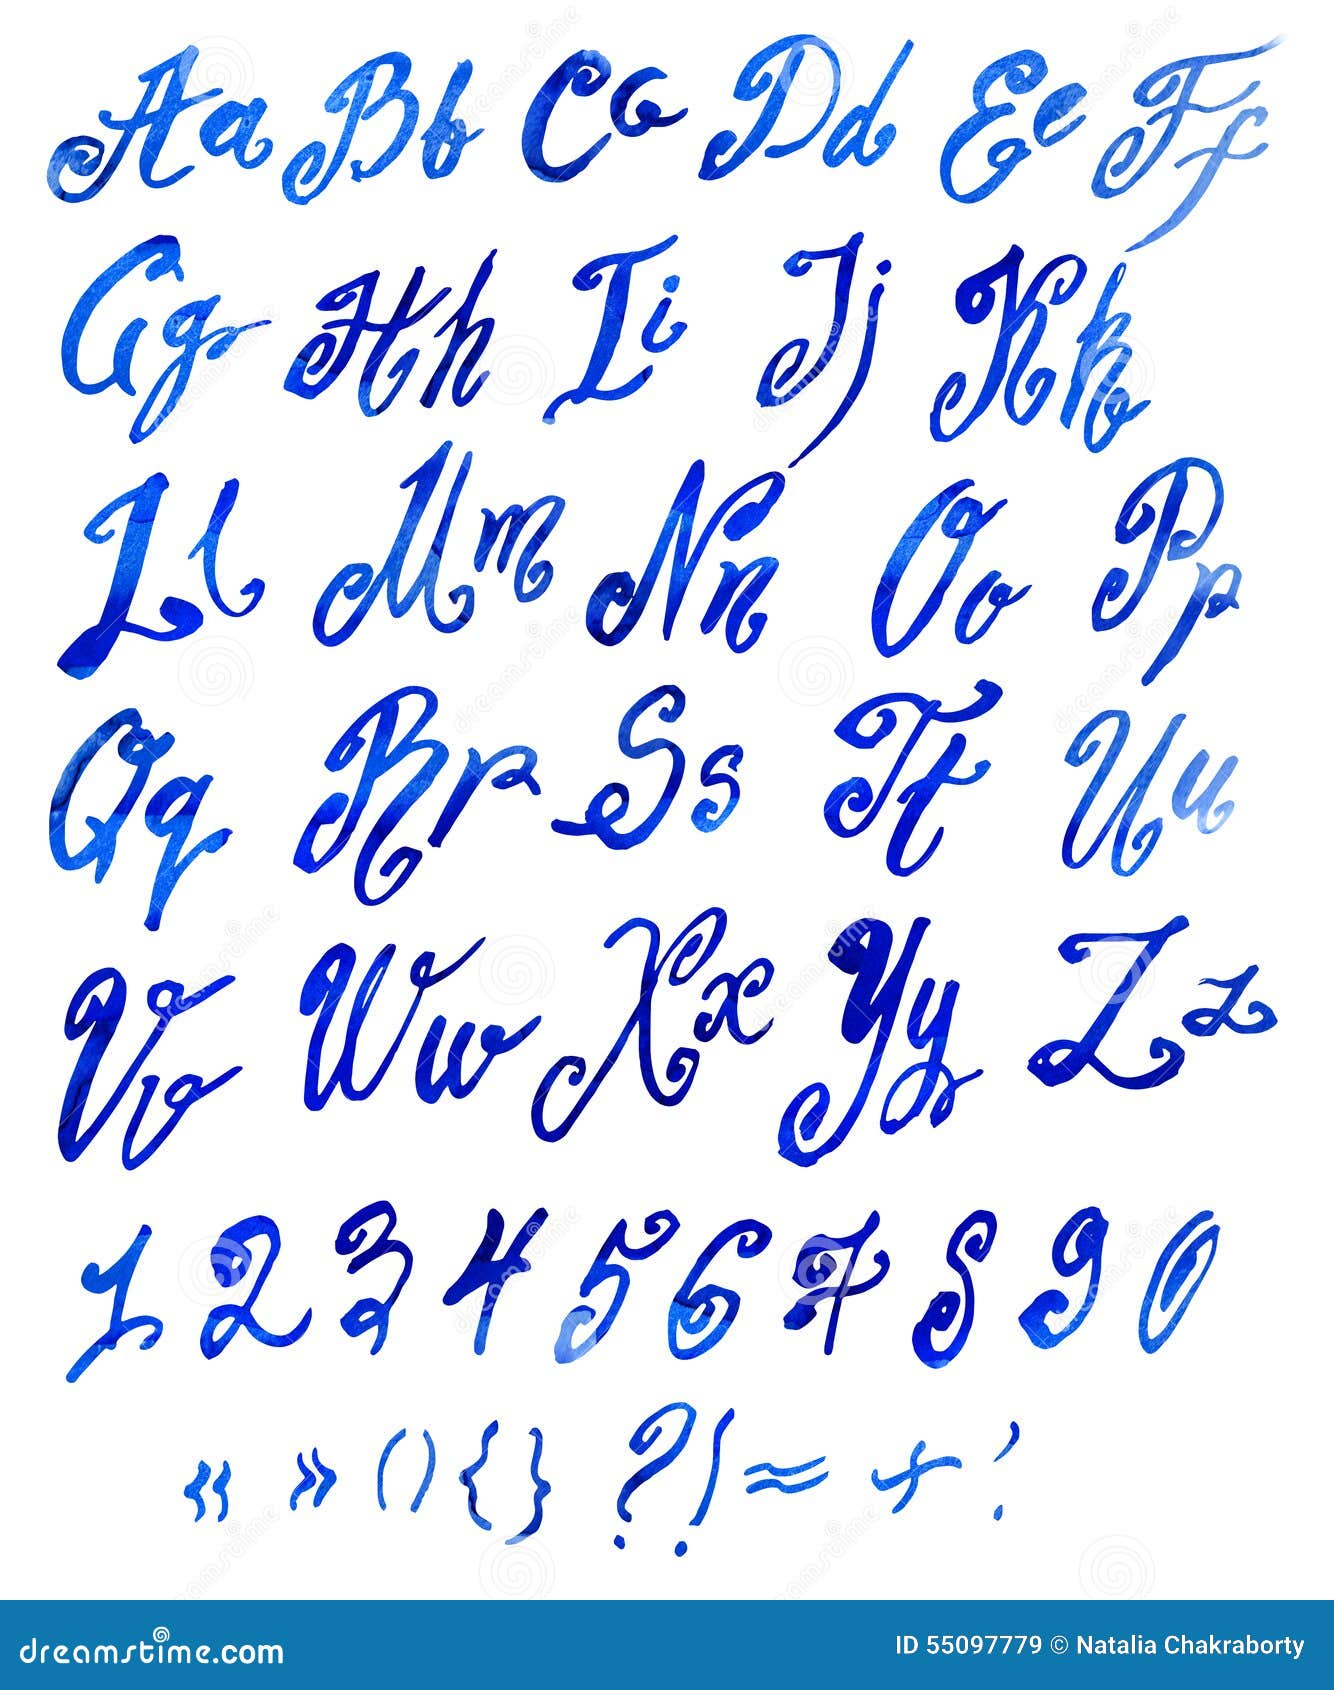 Aa Bb Cc Dd Ee Ff
Gg Hh Ii Jj Kk
Ll Mm Nn Oo Pp
Qq Rr Ss Tt Uu
Vv Ww Xx Yy Zz
1 2 3 4 5 6 7 8 9 0
« » () {} ? ! ≈ + ' .
dreamstime.com
ID 55097779 © Natalia Chakraborty